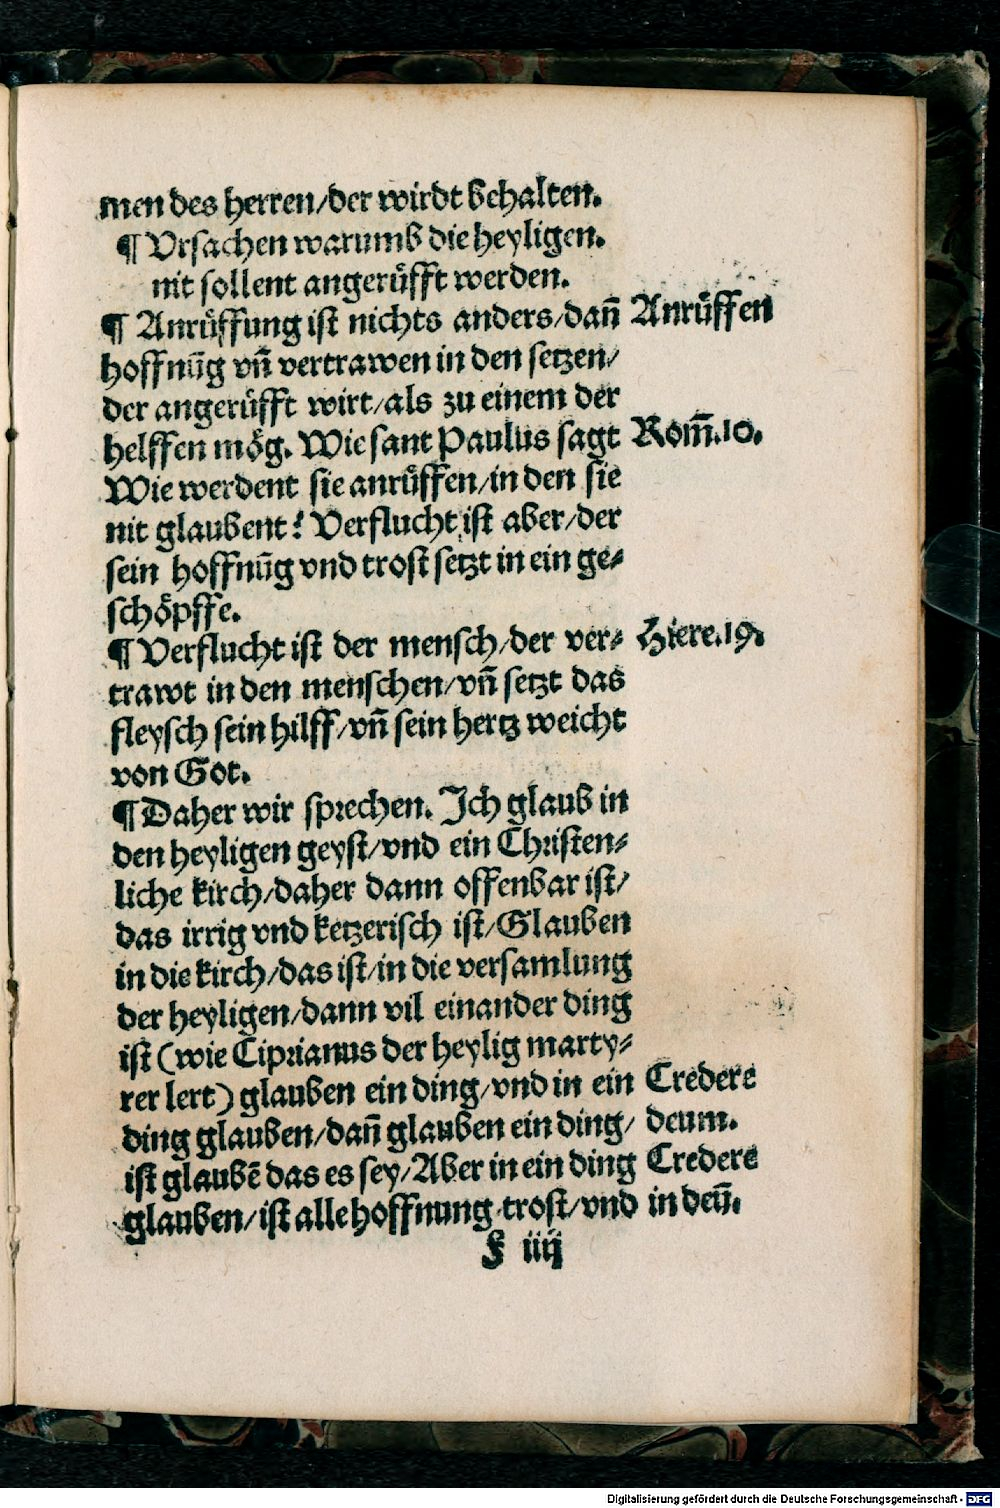 men des herren/der wirdt behalten.
¶ Vrsachen warumb die heyligen.
nit sollent angerüfft werden.
¶ Anrüffung ist nichts anders/dañ
Anrüffen
hoffnūg vñ vertrawen in den setzen/
der angerüfft wirt/als zu einem der
helffen mög. Wie sant Paulus sagt
Rom̃.10.
Wie werdent sie anrüffen/in den sie
nit glaubent? Verflucht ist aber/der
sein hoffnūg vnd trost setzt in ein ge⸗
schöpffe.
¶ Verflucht ist der mensch/der ver⸗
Hiere.19.
trawt in den menschen/vñ setzt das
fleysch sein hilff/vñ sein hertz weicht
von Got.
¶ Daher wir sprechen. Ich glaub in
den heyligen geyst/vnd ein Christen⸗
liche kirch/daher dann offenbar ist/
das irrig vnd ketzerisch ist/Glauben
in die kirch/das ist/in die versamlung
der heyligen/dann vil einander ding
ist (wie Ciprianus der heylig marty⸗
rer lert) glauben ein ding/vnd in ein
Credere
ding glauben/dañ glauben ein ding/
deum.
ist glaubē das es sey/Aber in ein ding
Credere
glauben/ist alle hoffnung trost/vnd
in deũ.
F iiij
Digitalisierung gefördert durch die Deutsche Forschungsgemeinschaft - DFG